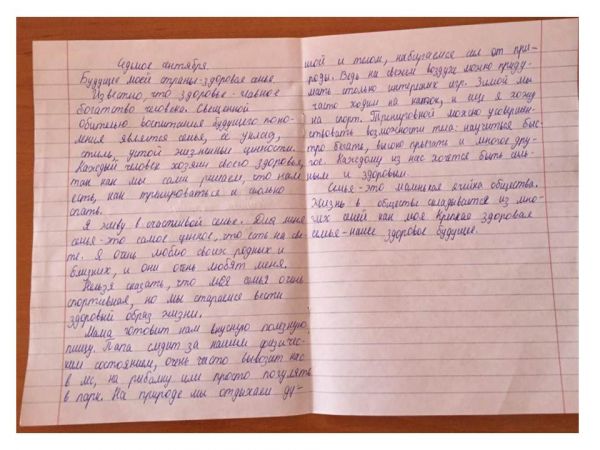 Седьмое сентября.
Будущее моей страны-здоровая семья.
Известно, что здоровье - главное
богатство человека. Священной
обителью воспитания будущего поко-
ления является семья, ее уклад,
стиль, устой жизненные ценности.
Каждый человек хозяин своего здоровья,
так как мы сами решаем, что нам
есть, как тренироваться и сколько
спать.
Я живу в счастливой семье. Для меня
семья-это самое ценное, что есть на све-
те. Я очень люблю своих родных и
близких, и они очень любят меня.
Нельзя сказать, что моя семья очень
спортивная, но мы стараемся вести
здоровый образ жизни.
Мама готовит нам вкусную полезную
пищу. Папа следит за нашим физичес-
ким состоянием, очень часто вывозит нас
в лес, на рыбалку или просто погулять
в парк. На природе мы отдыхаем ду-
шой и телом, набираемся сил от при-
роды. Ведь на свежем воздухе можно приду-
мать столько интересных игр. Зимой мы
часто ходим на каток, и еще я хожу
на спорт. Тренировкой можно усовершен-
ствовать возможности тела: научиться быс-
тро бегать, высоко прыгать и многое дру-
гое. Каждому из нас хочется быть силь-
ным и здоровым.
Семья-это маленькая ячейка общества.
Жизнь в обществе складывается из мно-
гих семей как моя. Крепкая здоровая
семья-наше здоровое будущее.